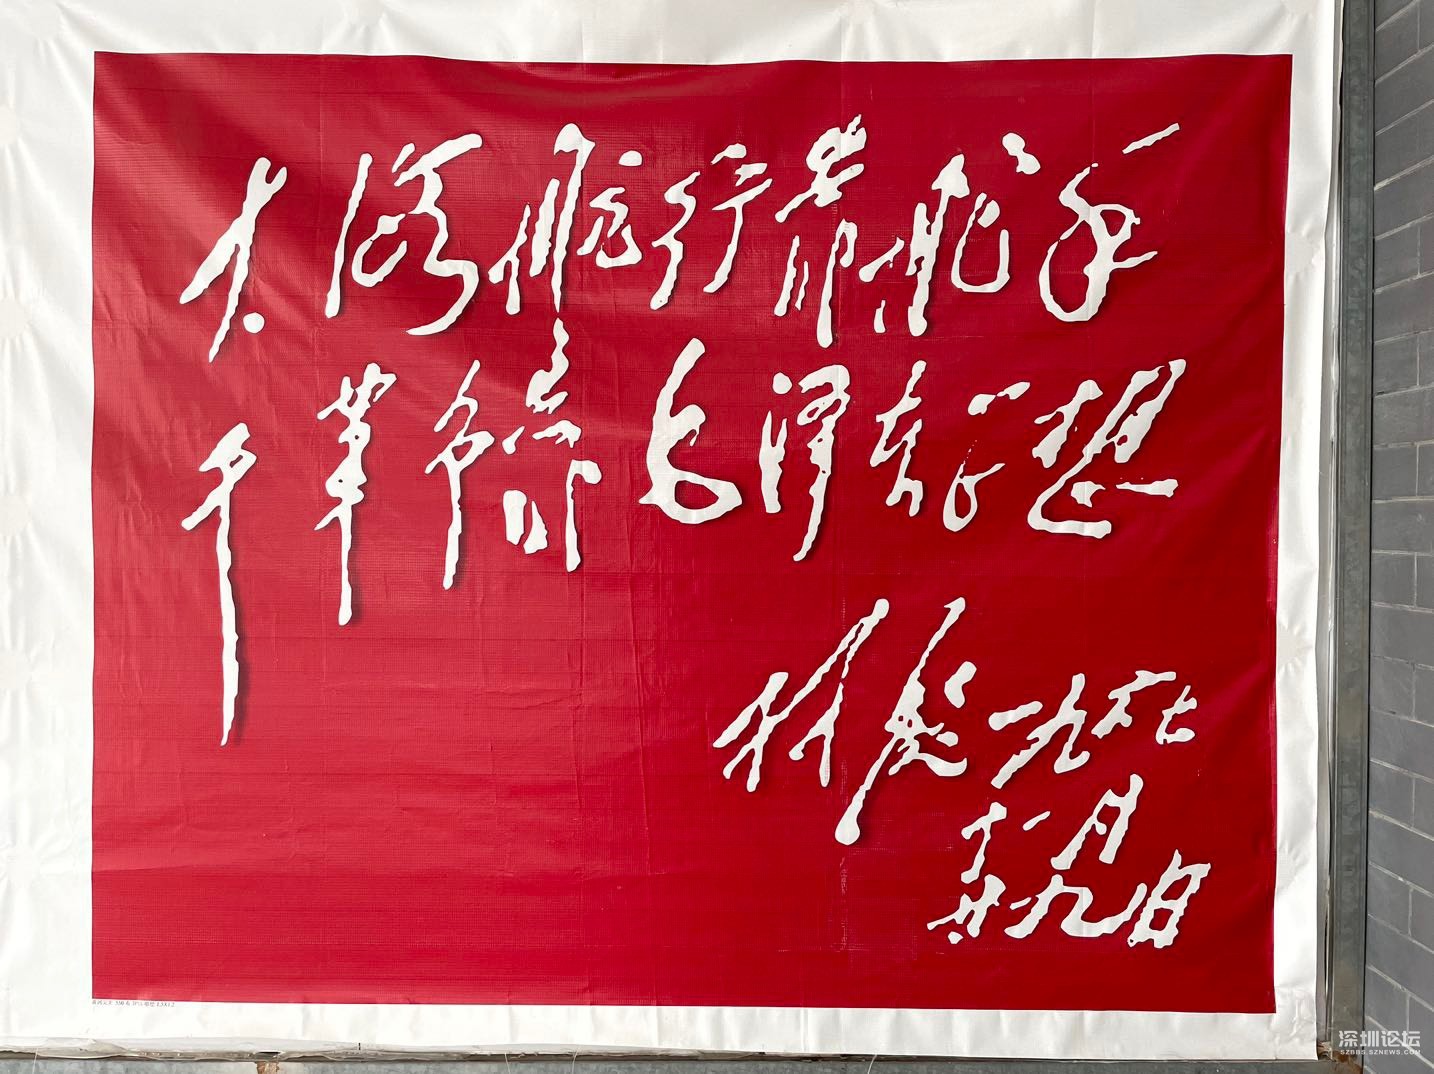 大海航行靠舵手
干革命靠毛泽东思想
林彪 一九六七
十一月
廿九日
深圳论坛
SZBBS.SZNEWS.COM